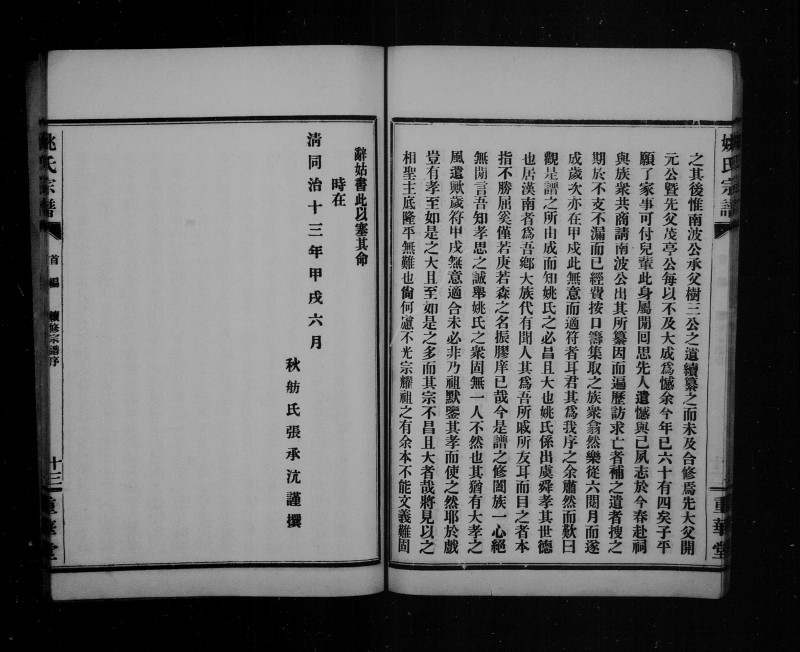 姚氏宗譜
之其後惟南波公承父樹三公之遺續纂之而未及合修焉先大父開
元公暨先父茂亭公每以不及大成爲憾余今年已六十有四矣子平
願了家事可付兒輩此身屬閒回思先人遺憾與己夙志於今春赴祠
與族衆共商請南波公出其所纂因而遍歷訪求亡者補之遺者搜之
期於不支不漏而已經費按口籌集取之族衆翕然樂從六閱月而遂
成歲次亦在甲戌此無意而適符者耳君其爲我序之余肅然而歎曰
觀是譜之所由成而知姚氏之必昌且大也姚氏係出虞舜孝其世德
也居漢南者爲吾鄉大族代有聞人其爲吾所戚所友耳而目之者本
指不勝屈奚僅若庚若森之名振膠庠已哉今是譜之修闔族一心絕
無閒言吾知孝思之誠舉姚氏之衆固無一人不然也其猶有大孝之
風遺歟歲符甲戌無意適合未必非乃祖默鑒其孝而使之然耶於戲
豈有孝至如是之大且至如是之多而其宗不昌且大者哉將見以之
相聖主底隆平無難也尙何慮不光宗耀祖之有余本不能文義難固
重華堂
辭姑書此以塞其命
時在
淸同治十三年甲戌六月
秋舫氏張承沆謹撰
姚氏宗譜
首編
續修宗譜序
十三
重華堂